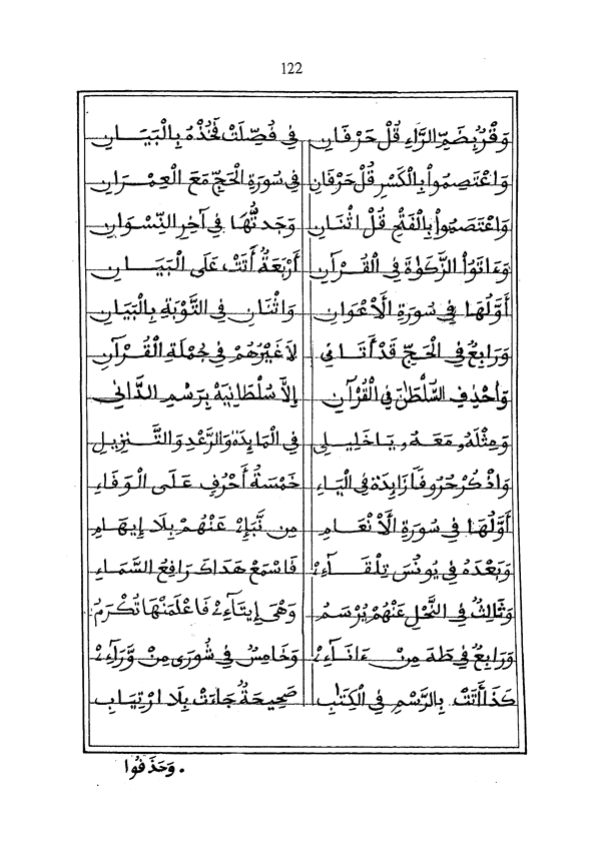 122
وَقْرٌ بِضَمِّ الرَّاءِ قُلْ حَرْفَانِ فِي فُصِّلَتْ فَخُذْهُ بِالْبَيَانِ
وَاعْتَصِمُواْ بِالْكَسْرِ قُلْ حَرْفَانِ فِي سُورَةِ الْحَجِّ مَعَ الْعِمْرَانِ
وَاعْتَصَمُواْ بِالْفَتْحِ قُلْ اثْنَانِ وَجَدتُّهَا فِي آخِرِ النِّسْوَانِ
وَءَاتَوُاْ الزَّكَوٰةَ فِي الْقُرْآنِ أَرْبَعَةٌ أَتَتْ عَلَى الْبَيَانِ
أَوَّلُهَا فِي سُورَةِ الْأَعْوَانِ وَاثْنَانِ فِي التَّوْبَةِ بِالْبَيَانِ
وَرَابِعٌ فِي الْحَجِّ قَدْ أَتَانِي لَا غَيْرُهُمْ فِي جُمْلَةِ الْقُرْآنِ
وَاحْذِفِ السُّلْطَٰنَ فِي الْقُرْآنِ إِلَّا سُلْطَانِيَهْ بِرَسْمِ الدَّانِي
وَمِثْلَهُ مَعَهُ يَا خَلِيلِي فِي الْمَايِدَةِ وَالرَّعْدِ وَالتَّنزِيلِ
وَاذْكُرْ حُرُوفاً زَايِدَةً فِي الْيَاءِ خَمْسَةُ أَحْرُفٍ عَلَى الْوَفَاءِ
أَوَّلُهَا فِي سُورَةِ الْأَنْعَامِ مِن نَّبَإِيْ عَنْهُمْ بِلَا إِيهَامِ
وَبَعْدَهُ فِي يُونُسَ تِلْقَآءِيْ فَاسْمَعْ هَدَاكَ رَافِعُ السَّمَاءِ
وَثَالِثٌ فِي النَّحْلِ عَنْهُمْ يُرْسَمُ وَهْيَ إِيتَآءِيْ فَاعْلَمَنْهَا تُكْرَمُ
وَرَابِعٌ فِي طَهَ مِنْ ءَانَآءِيْ وَخَامِسٌ فِي شُورَى مِنْ وَّرَآءِيْ
كَذَا أَتَتْ بِالرَّسْمِ فِي الْكِتَٰبِ صَحِيحَةٌ جَاءَتْ بِلَا ارْتِيَابِ
. وَحَذَفُوا